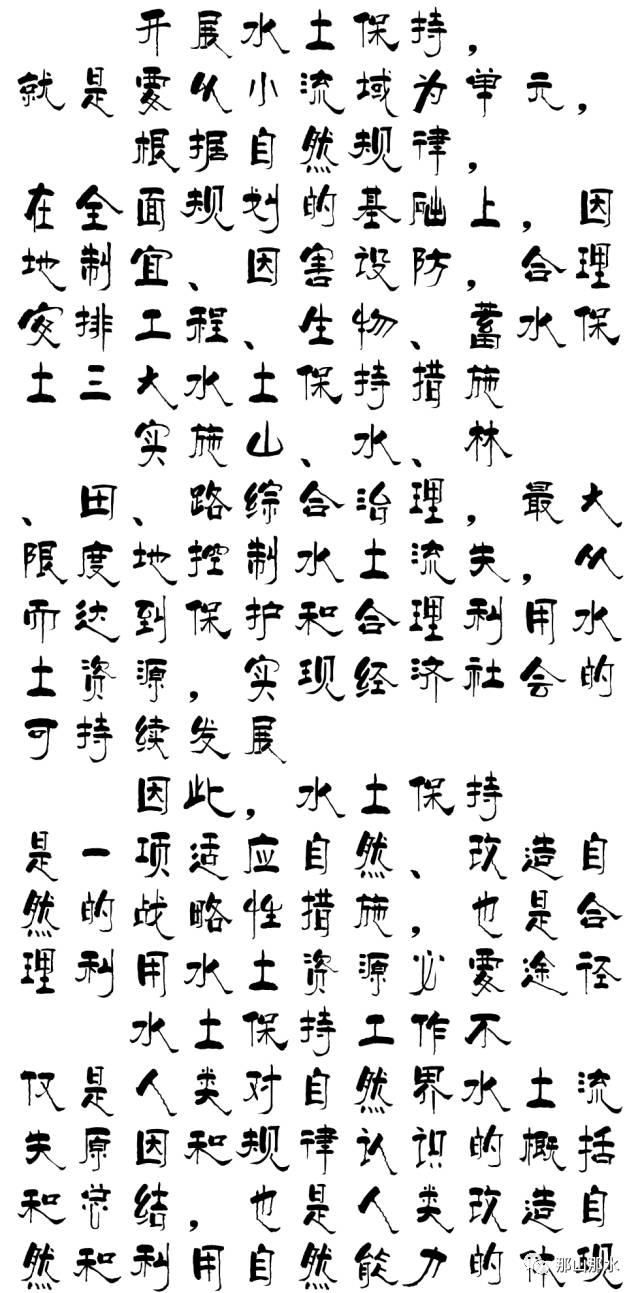 开展水土保持，
就是要从小流域为单元，
根据自然规律，
在全面规划的基础上，因
地制宜、因害设防，合理
安排工程、生物、蓄水保
土三大水土保持措施
实施山、水、林
、田、路综合治理，最大
限度地控制水土流失，从
而达到保护和合理利用水
土资源，实现经济社会的
可持续发展
因此，水土保持
是一项适应自然、改造自
然的战略性措施，也是合
理利用水土资源必要途径
水土保持工作不
仅是人类对自然界水土流
失原因和规律认识的概括
和总结，也是人类改造自
然和利用自然能力的体现
那山那水